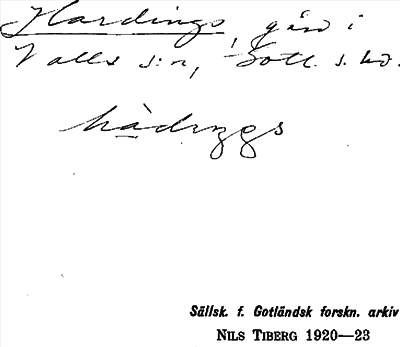 Hardings, gård i
Valls s:n, Gotl. s. hd.
hàdıŋgs
Sällsk. f. Gotländsk forskn. arkiv
NILS TIBERG 1920—23